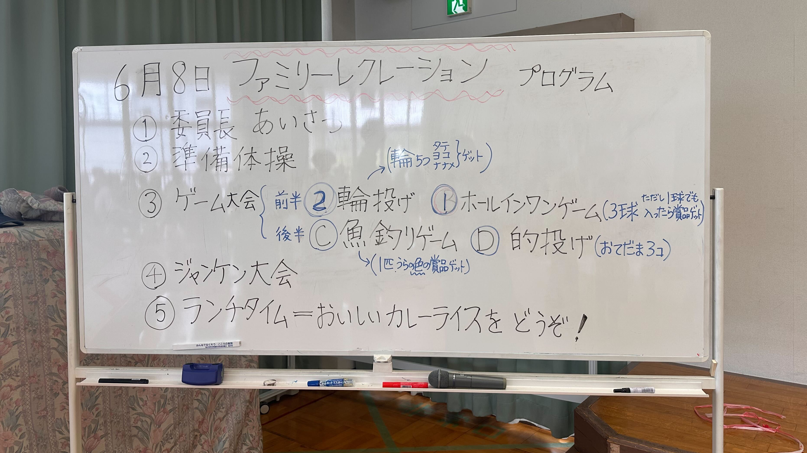 6月8日 ファミリーレクレーション プログラム
① 委員長 あいさつ
② 準備体操
(輪5つ タテ ヨコ ナナメ ゲット)
③ ゲーム大会 前半 ② 輪投げ ① ホールインワンゲーム (3球 ただし1球でも入ったら賞品ゲット)
後半 Ⓒ 魚釣りゲーム Ⓓ 的投げ (おてだま3コ)
(1匹 うらの魚の賞品ゲット)
④ ジャンケン大会
⑤ ランチタイム=おいしいカレーライスを どうぞ!